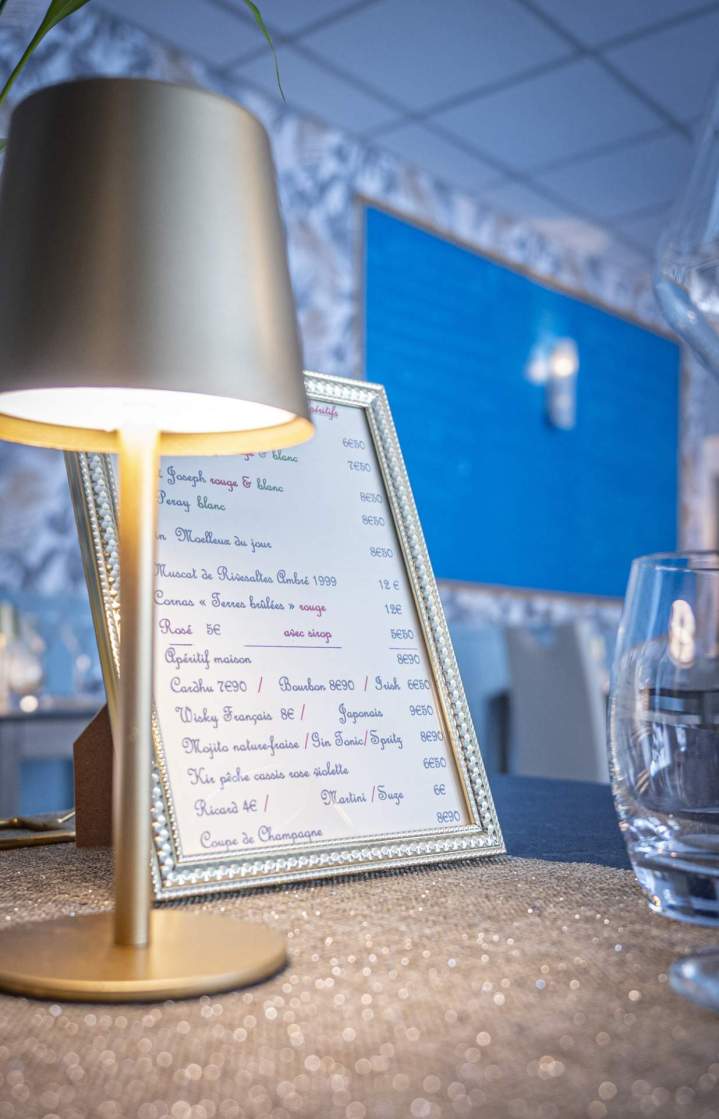 apéritifs
6€50
& blanc
7€50
Joseph rouge & blanc
8€50
Peray blanc
8€50
Moelleux du jour
8€50
Muscat de Rivesaltes Ambré 1999 12 €
Cornas « Terres brûlées » rouge 12€
Rosé 5€ avec sirop 5€50
Apéritif maison 8€90
Cardhu 7€90 / Bourbon 8€90 / Irish 6€50
Wisky Français 8€ / Japonais 9€50
Mojito nature-fraise / Gin Tonic / Spritz 8€90
Kir pêche cassis rose violette 6€50
Ricard 4€ / Martini / Suze 6€
Coupe de Champagne 8€90